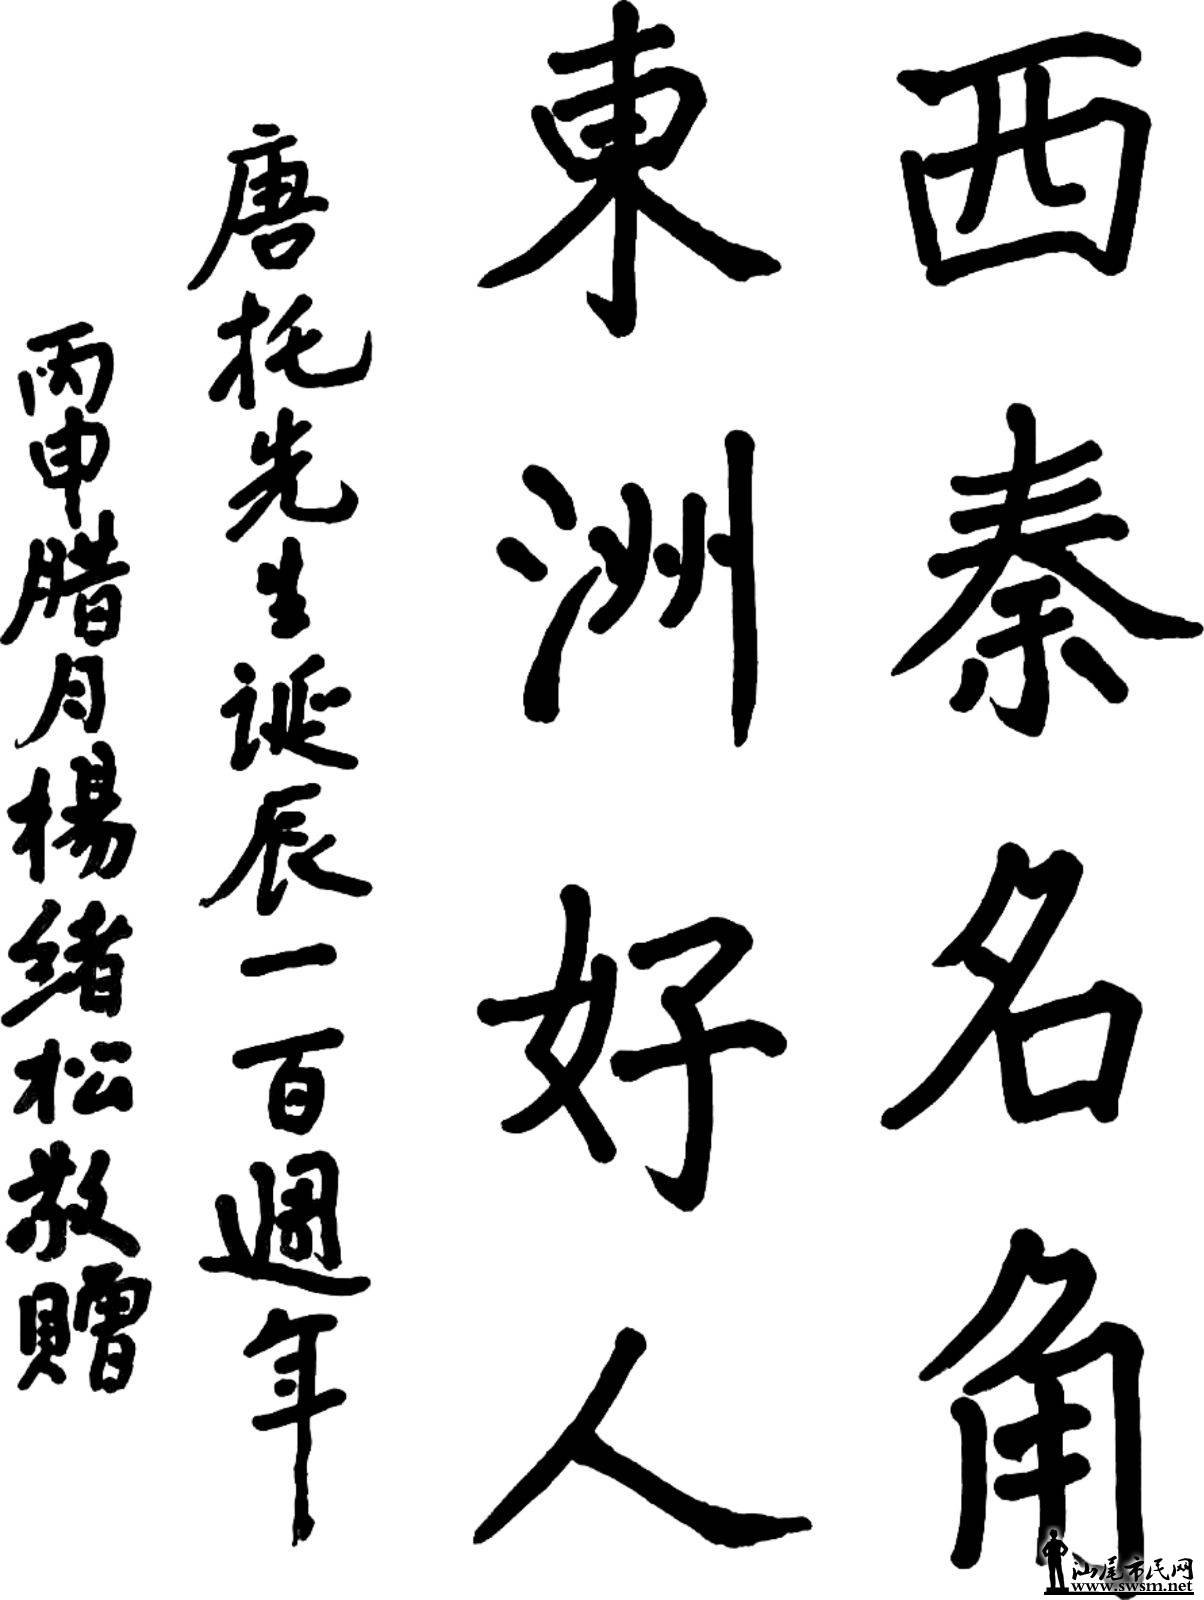 西秦名角
東洲好人
唐托先生誕辰一百週年
丙申腊月楊緒松敬贈
汕尾市民网
www.swsm.net